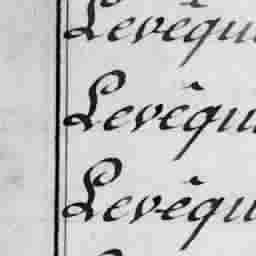 Levêqu
Levêqu
Levêqu